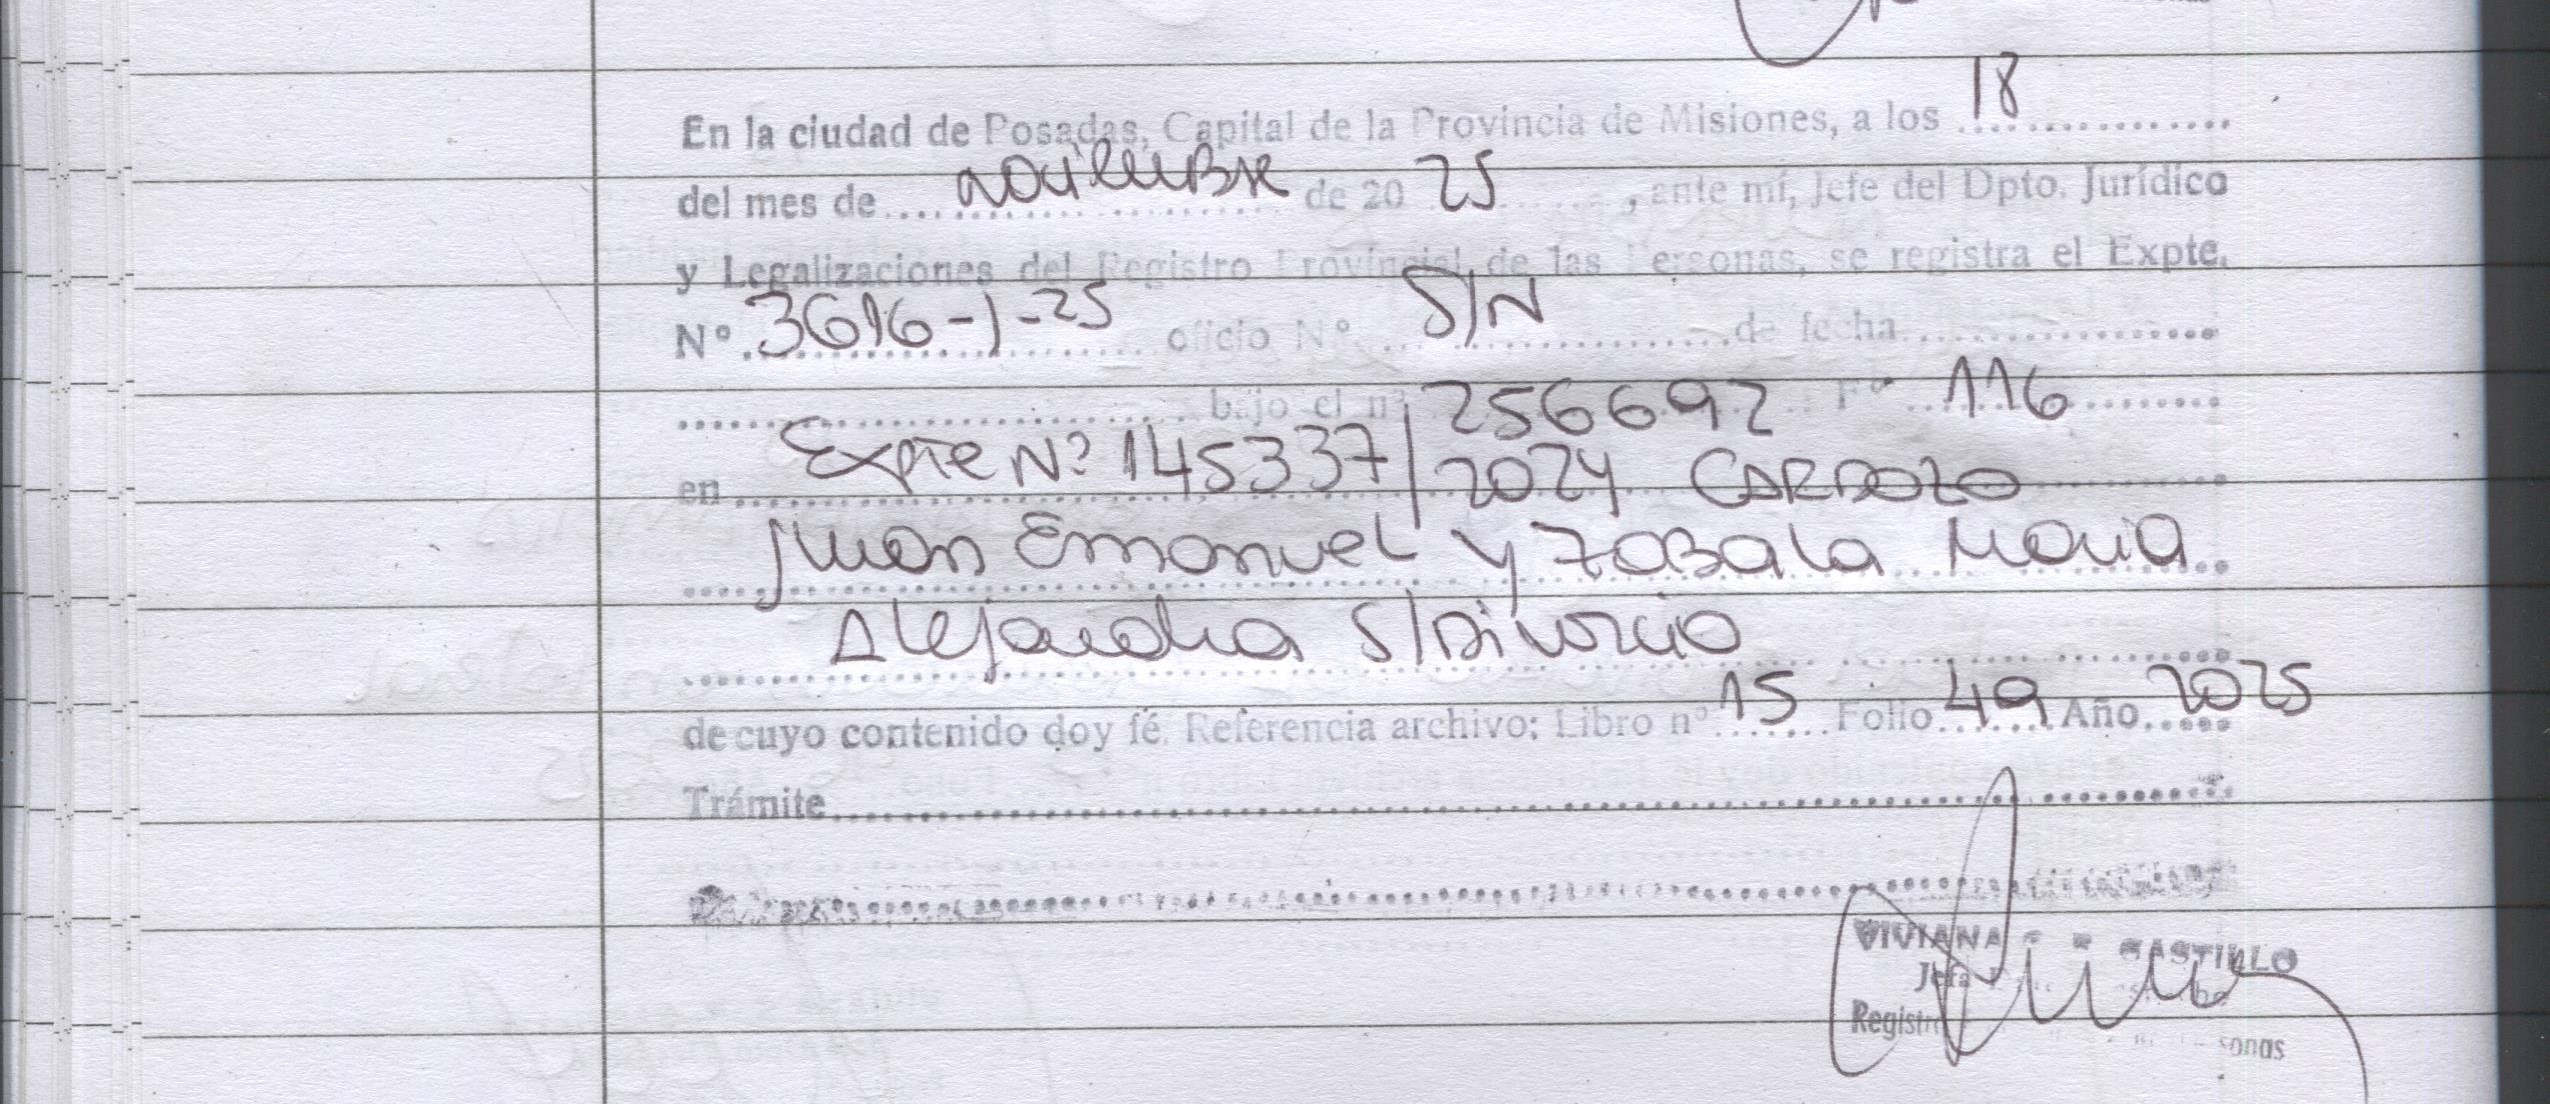 En la ciudad de Posadas, Capital de la Provincia de Misiones, a los 18
del mes de noviembre de 20 25, ante mí, Jefe del Dpto. Jurídico
y Legalizaciones del Registro Provincial de las Personas, se registra el Expte.
N° 3616-1-25 oficio N° S/N de fecha
bajo el n° 256692 F° 116
en Expte N° 145337/2024 CARDOZO
Juan Emanuel y Zobala Maria
Alejandra S/Divorcio
de cuyo contenido doy fé. Referencia archivo; Libro n° 15 Folio 49 Año 2025
Trámite
VIVIANA CASTILLO
Jefa
Registro